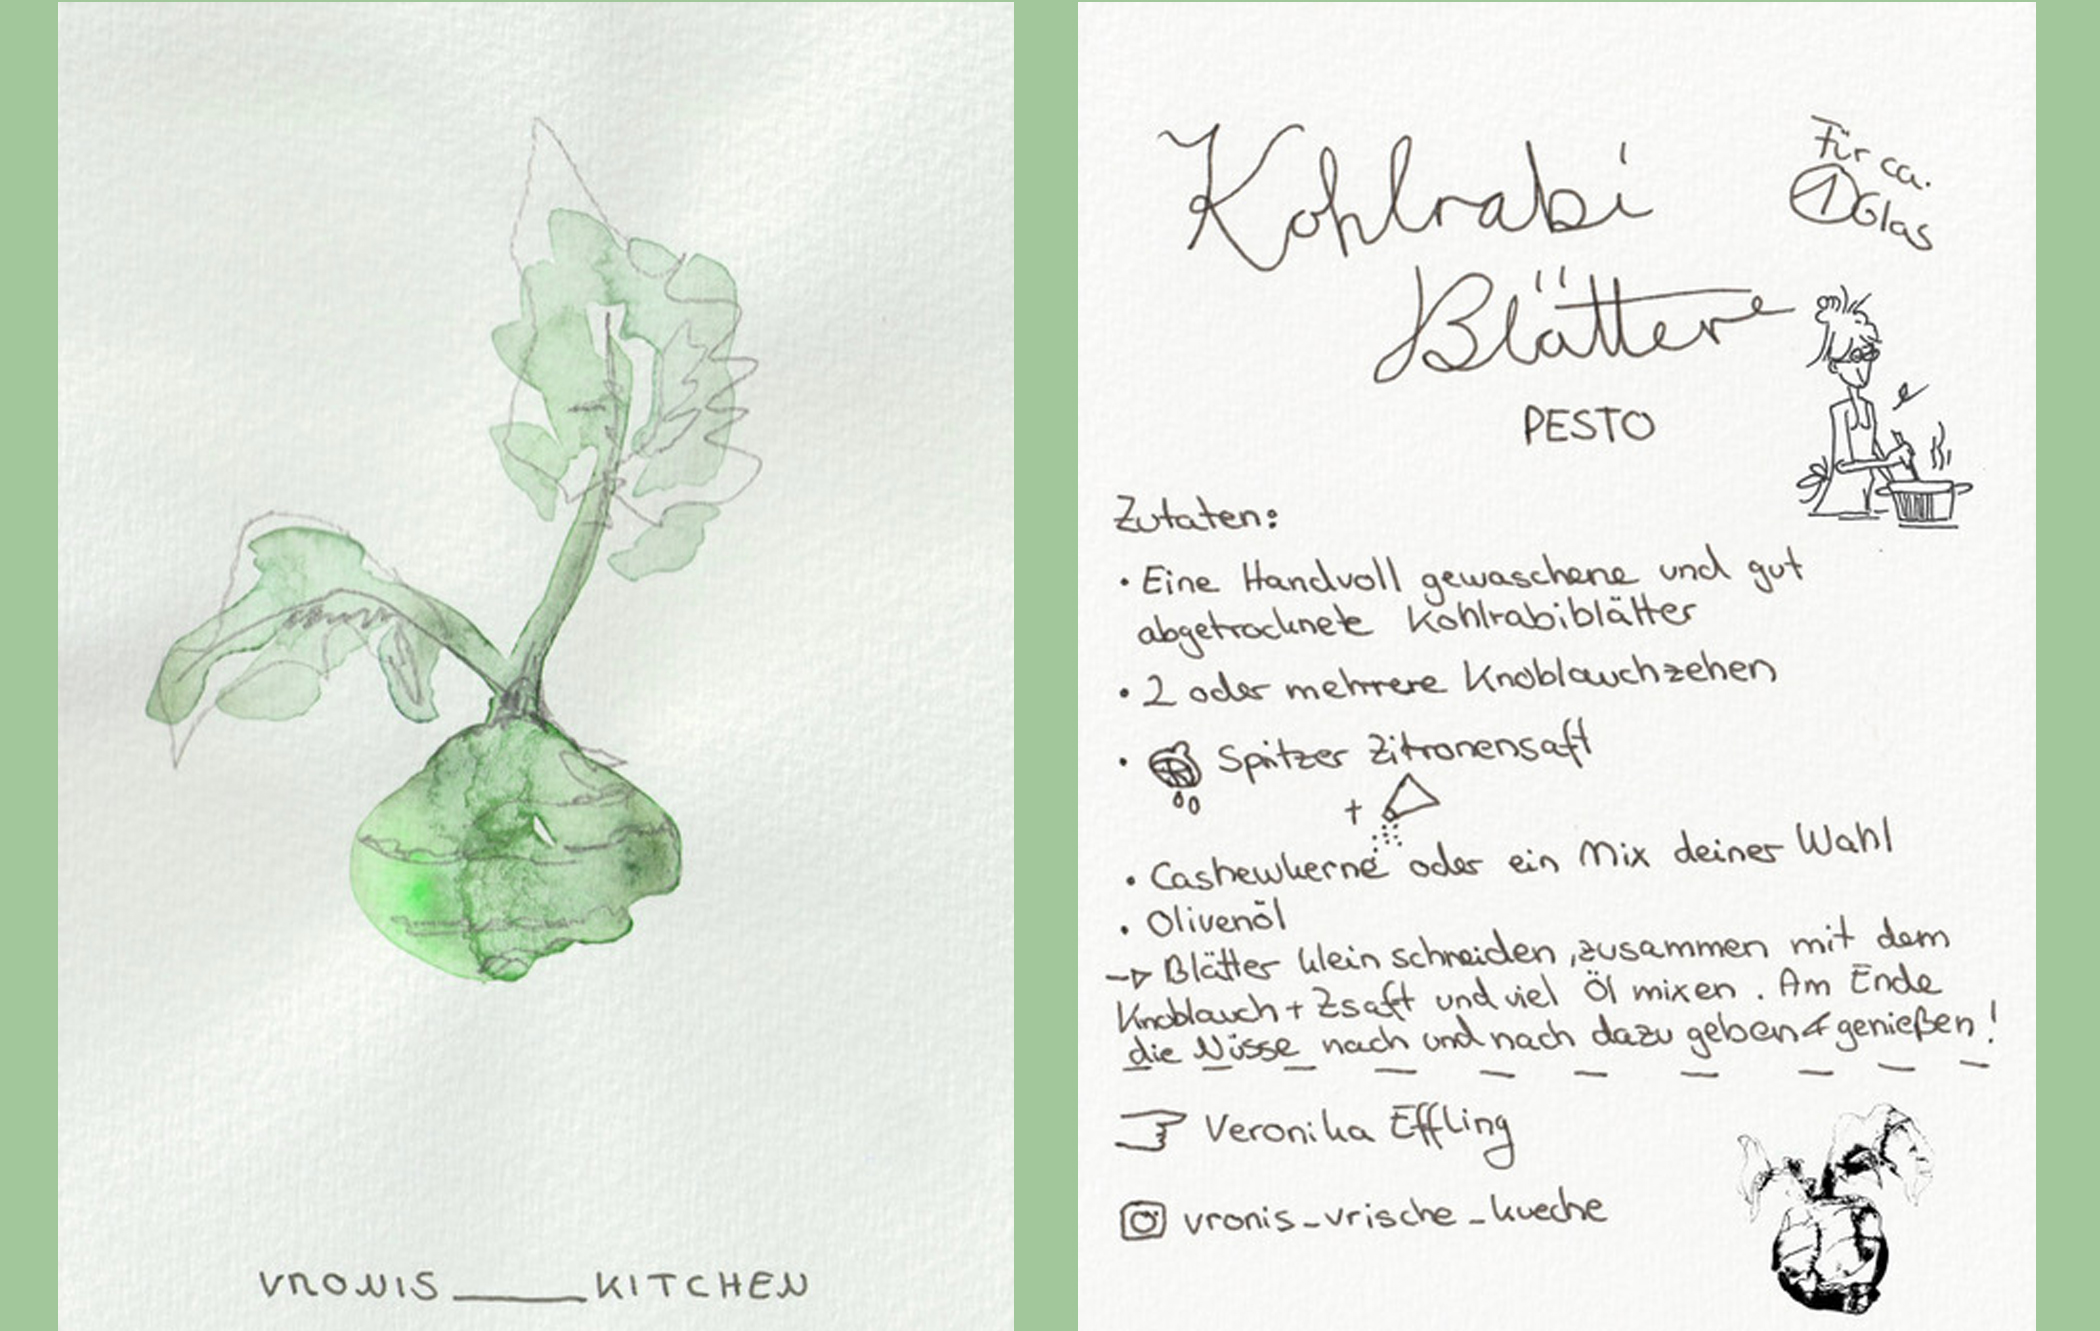 VRONIS ____ KITCHEN
Kohlrabi
Blätter
PESTO
Für ca.
1 Glas
Zutaten:
• Eine Handvoll gewaschene und gut
abgetrocknete Kohlrabiblätter
• 2 oder mehrere Knoblauchzehen
• Spritzer Zitronensaft
+
• Cashewkerne oder ein Mix deiner Wahl
• Olivenöl
→ Blätter klein schneiden, zusammen mit dem
Knoblauch + Zsaft und viel Öl mixen. Am Ende
die Nüsse nach und nach dazu geben & genießen!
Veronika Effling
vronis_vrische_kueche